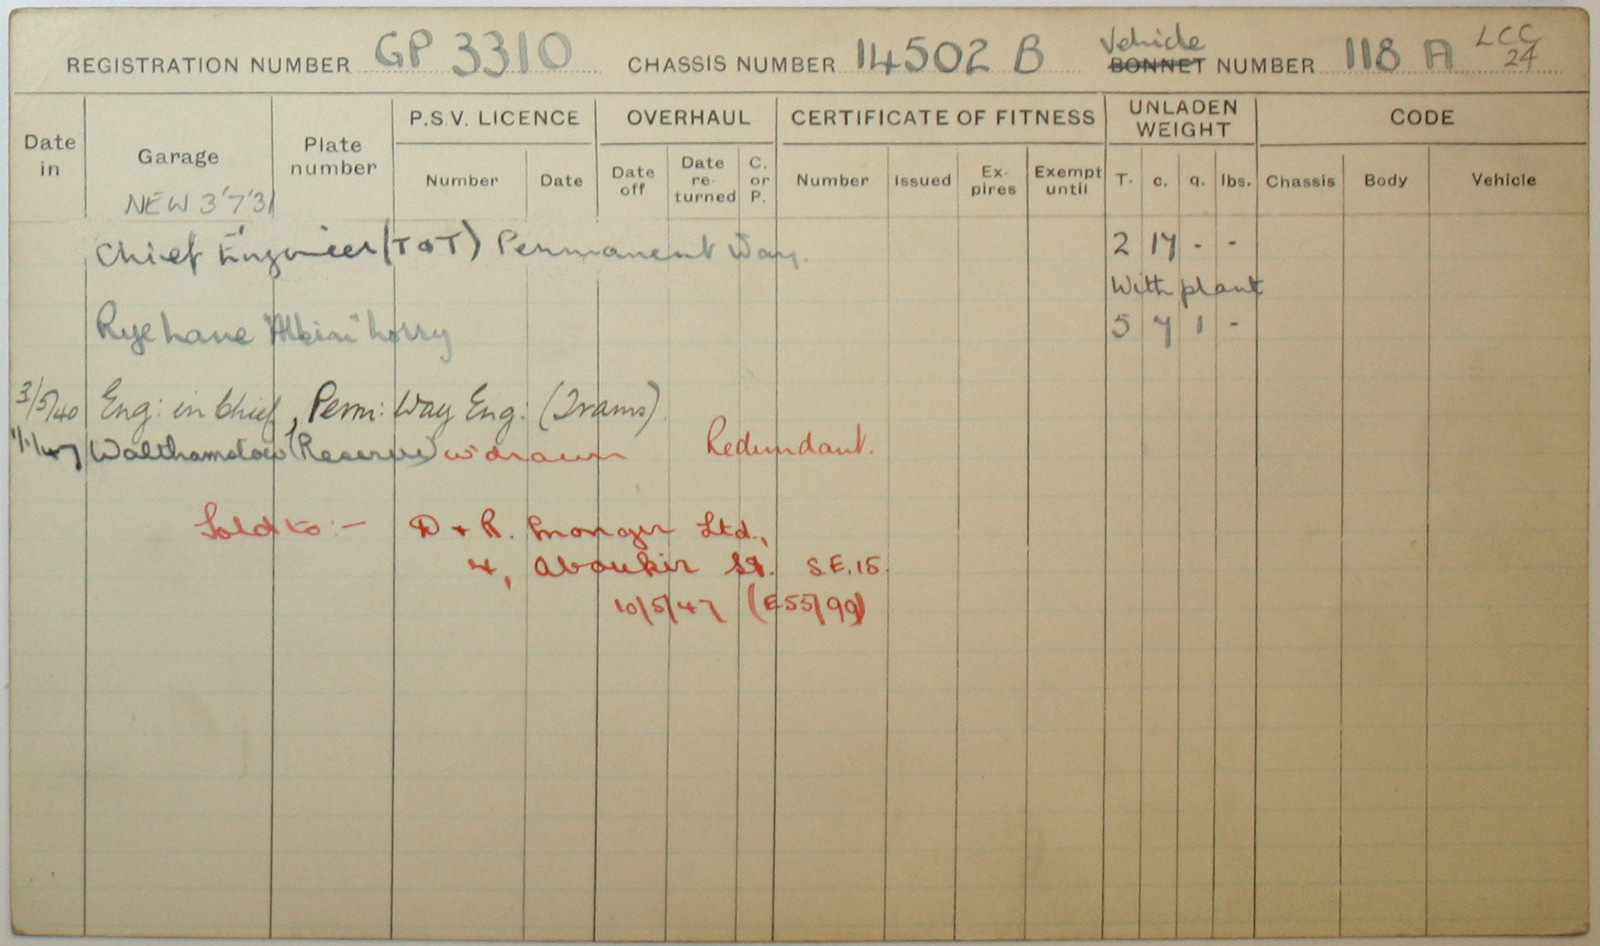 REGISTRATION NUMBER GP 3310 CHASSIS NUMBER 14502 B Vehicle BONNET NUMBER 118 A LCC 24
Date in Garage Plate number P.S.V. LICENCE OVERHAUL CERTIFICATE OF FITNESS UNLADEN WEIGHT CODE
Number Date Date off Date re-turned C. or P. Number Issued Ex-pires Exempt until T. c. q. lbs. Chassis Body Vehicle
NEW 3'7'31
Chief Engineer (T & T) Permanent Way. 2 17 - -
With plant
Rye Lane "Albion" Lorry 5 7 1 -
3/5/40 Eng: in Chief, Perm: Way Eng: (Trams)
1/1/47 Walthamstow (Reserve) w'drawn Redundant.
Sold to:- D + R. Monger Ltd.,
4, Aboukir St. S.E.15.
10/5/47 (E55/99)